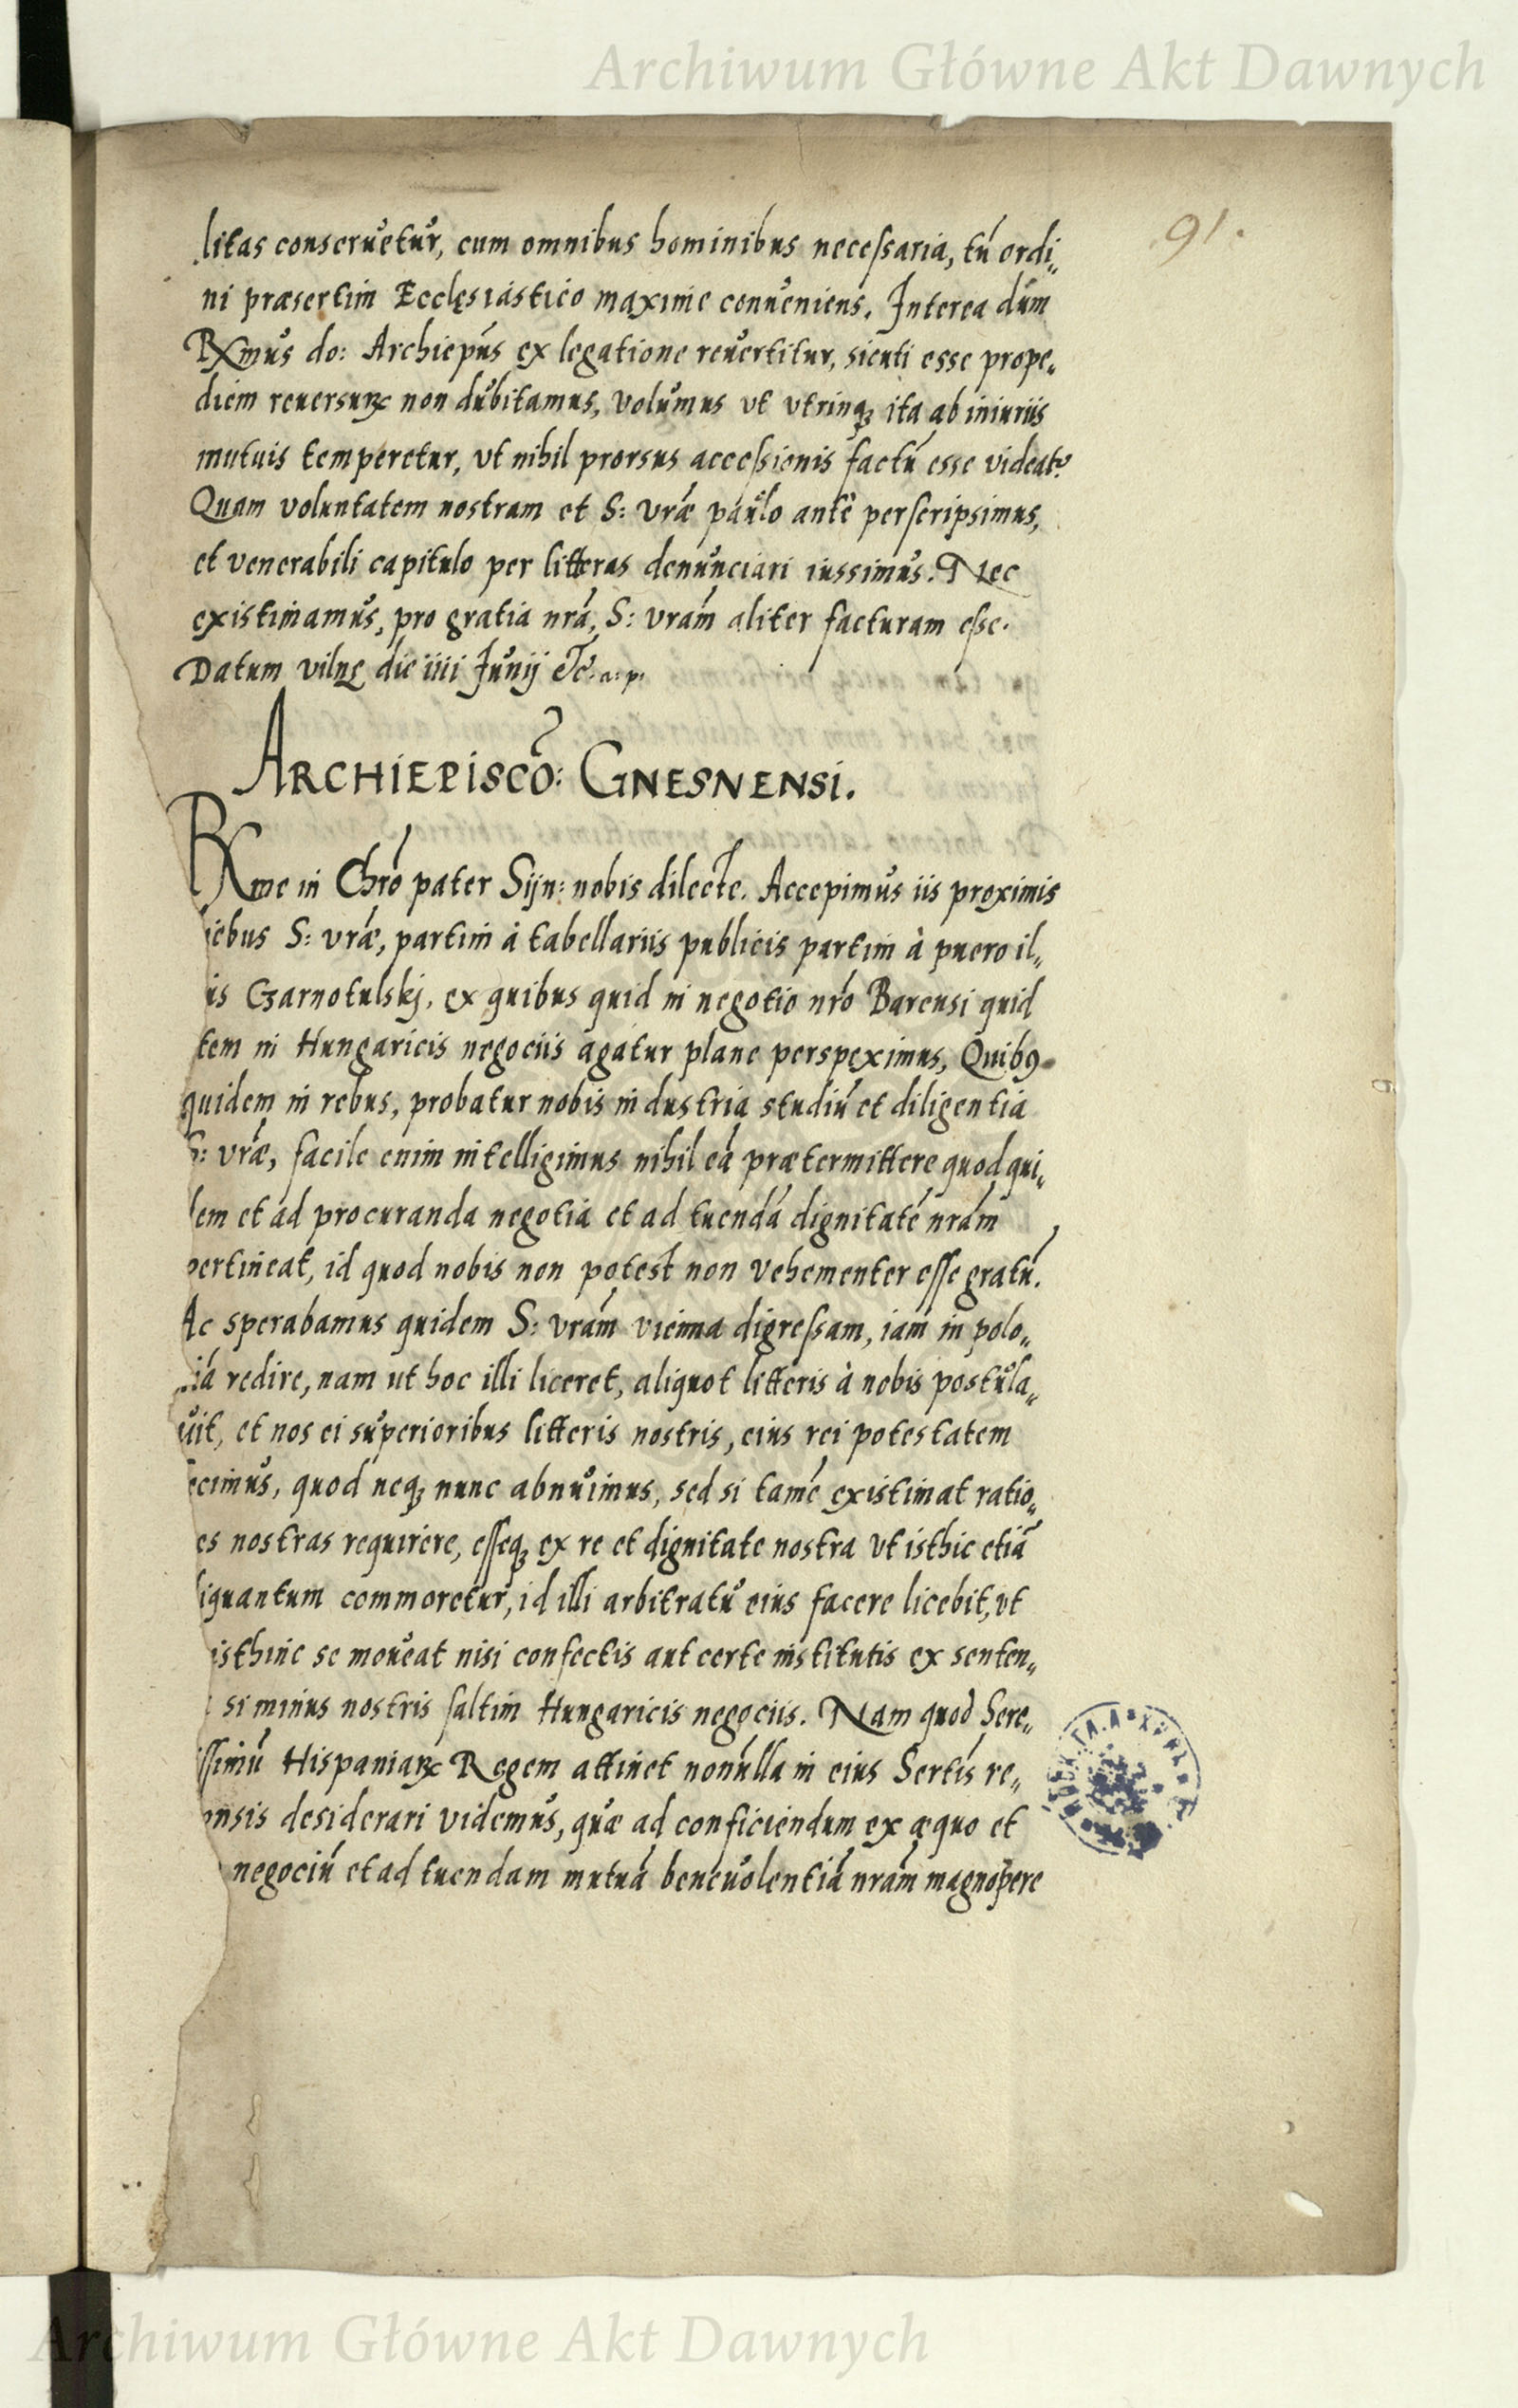 Archiwum Główne Akt Dawnych
91.
litas conseruetur, cum omnibus hominibus necessaria, tú ordi„
ni præsertim Ecclęsiastico maxime conueniens. Interea dum
Rxmus do: Archiepús ex legatione reuertitur, sicuti esse prope„
diem reuersurꝝ non dubitamus, volumus vt vtrinqꝫ ita ab iniuriis
mutuis temperetur, vt nihil prorsus accessionis factú esse videatr
Quam voluntatem nostram et S: vráe paulo ante perscripsimus,
et venerabili capitulo per litteras denunciari iussimus. Nec
existimamus, pro gratia nrá, S: vrám aliter facturam esse.
Datum vilnę die iiii Junij etc̃. a: p:
ARCHIEPISCO: GNESNENSI.
Rxme in Chró pater Sijn: nobis dilecte. Accepimus iis proximis
iebus S: vráe, partim à tabellariis publicis partim à puero il„
us Czarnotulskj, ex quibus quid in negotio nró Barensi quid
tem in Hungaricis negociis agatur plane perspeximus, Quibꝰ
quidem in rebus, probatur nobis industria studiú et diligentia
S: vráe, facile enim intelligimus nihil eá prætermittere quod qui„
em et ad procuranda negotia et ad tuendá dignitaté nrám
pertineat, id quod nobis non potest non vehementer esse gratú.
Ac sperabamus quidem S: vrám vienna digressam, iam in polo„
iá redire, nam ut hoc illi liceret, aliquot litteris à nobis postula„
uit, et nos ei superioribus litteris nostris, eius rei potestatem
ecimus, quod neqꝫ nunc abnuimus, sed si tamé existimat ratio„
es nostras requirere, esseqꝫ ex re et dignitate nostra vt isthic etiá
liquantum commoretur, id illi arbitratu eius facere licebit, vt
isthinc se moueat nisi confectis aut certe institutis ex senten„
si minus nostris saltim Hungaricis negociis. Nam quod Sere„
issimú Hispaniarꝝ Regem attinet nonúlla in eius Sertis re„
onsis desiderari videmus, quæ ad conficiendum ex æquo et
negociú et ad tuendam mutuá beneuolentiá nrám magnopere
Archiwum Główne Akt Dawnych